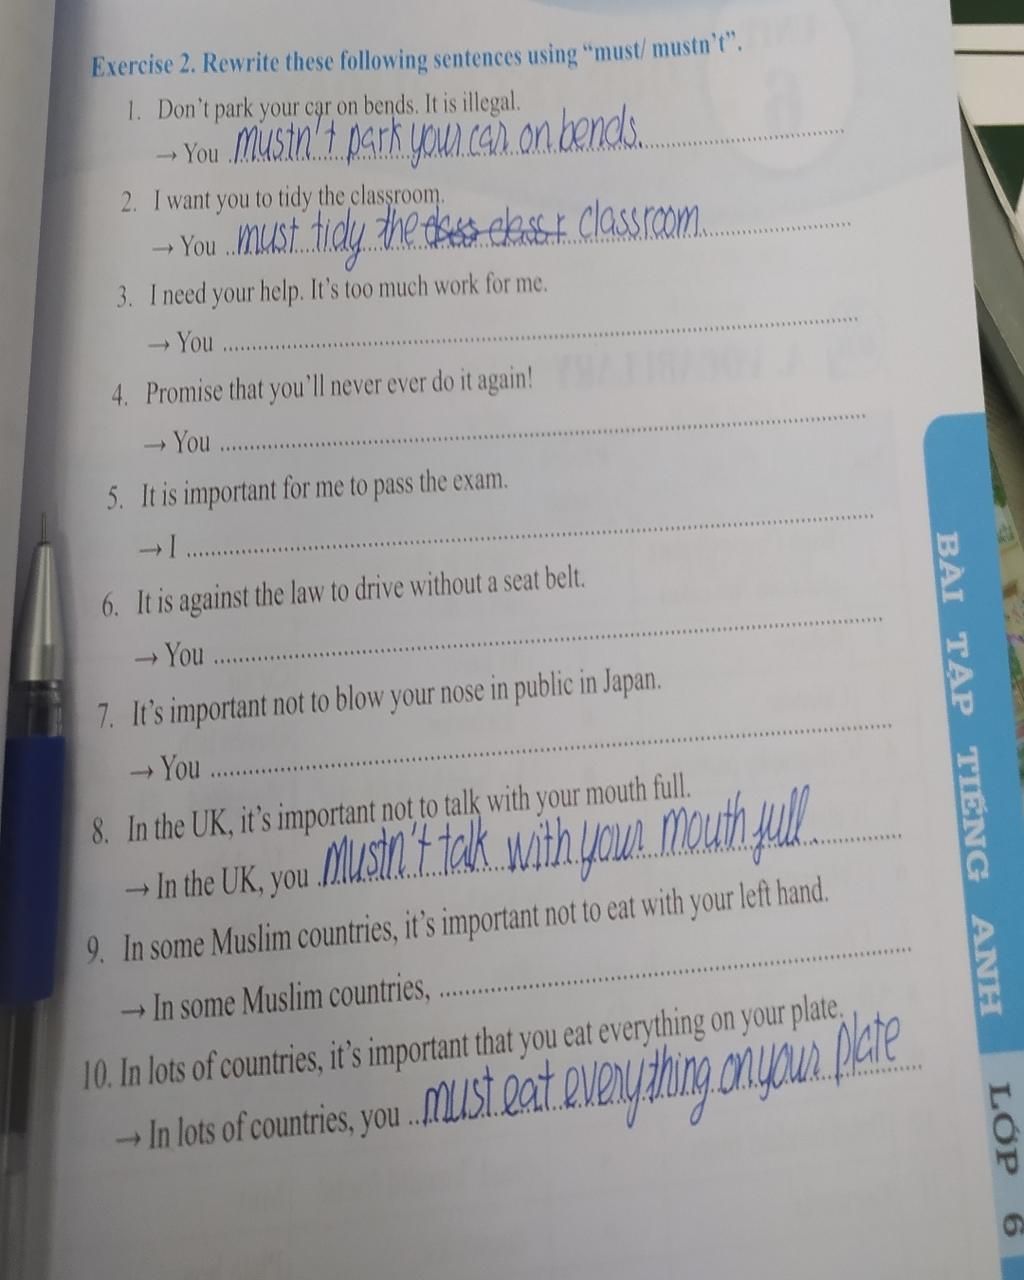 Exercise 2. Rewrite these following sentences using “must/ mustn’t”.
1. Don’t park your car on bends. It is illegal.
→ You mustn't park your car on bends.
2. I want you to tidy the classroom.
→ You must tidy the class class r classroom.
3. I need your help. It’s too much work for me.
→ You
4. Promise that you’ll never ever do it again!
→ You
5. It is important for me to pass the exam.
→ I
6. It is against the law to drive without a seat belt.
→ You
7. It’s important not to blow your nose in public in Japan.
→ You
8. In the UK, it’s important not to talk with your mouth full.
→ In the UK, you mustn't talk with your mouth full.
9. In some Muslim countries, it’s important not to eat with your left hand.
→ In some Muslim countries,
10. In lots of countries, it’s important that you eat everything on your plate.
→ In lots of countries, you must eat everything on your plate
BÀI TẬP TIẾNG ANH LỚP 6